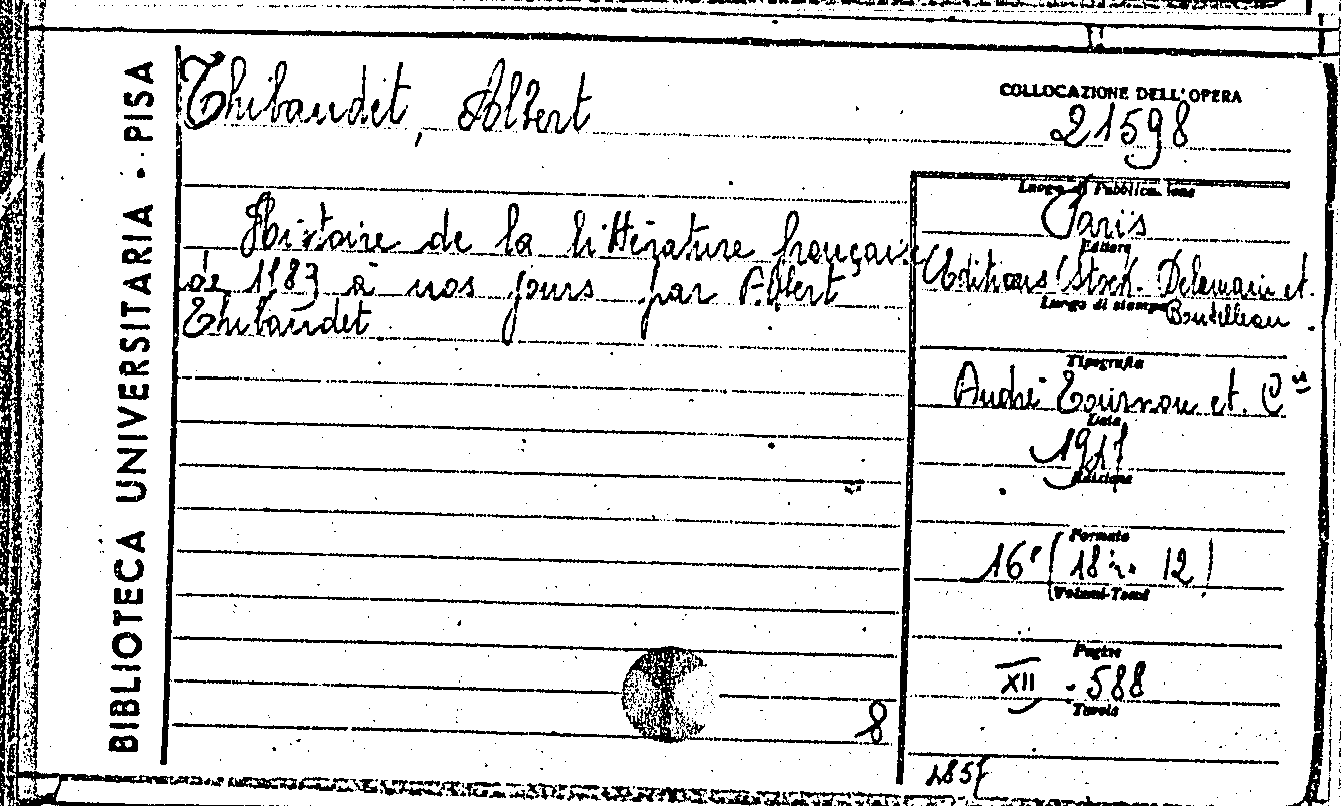 BIBLIOTECA UNIVERSITARIA - PISA
Thibaudet, Albert
COLLOCAZIONE DELL'OPERA
21598
Histoire de la littérature française
de 1983 à nos jours par Albert
Thibaudet
Luogo di Pubblicazione
Paris
Editore
Editions Stock. Delamain et.
Luogo di stampa
Boutelleau.
Tipografia
André Tournon et. Cie
Data
Edizione
Formato
16° (18 12)
Volumi-Tomi
Pagine
XII - 588
Tavole
8